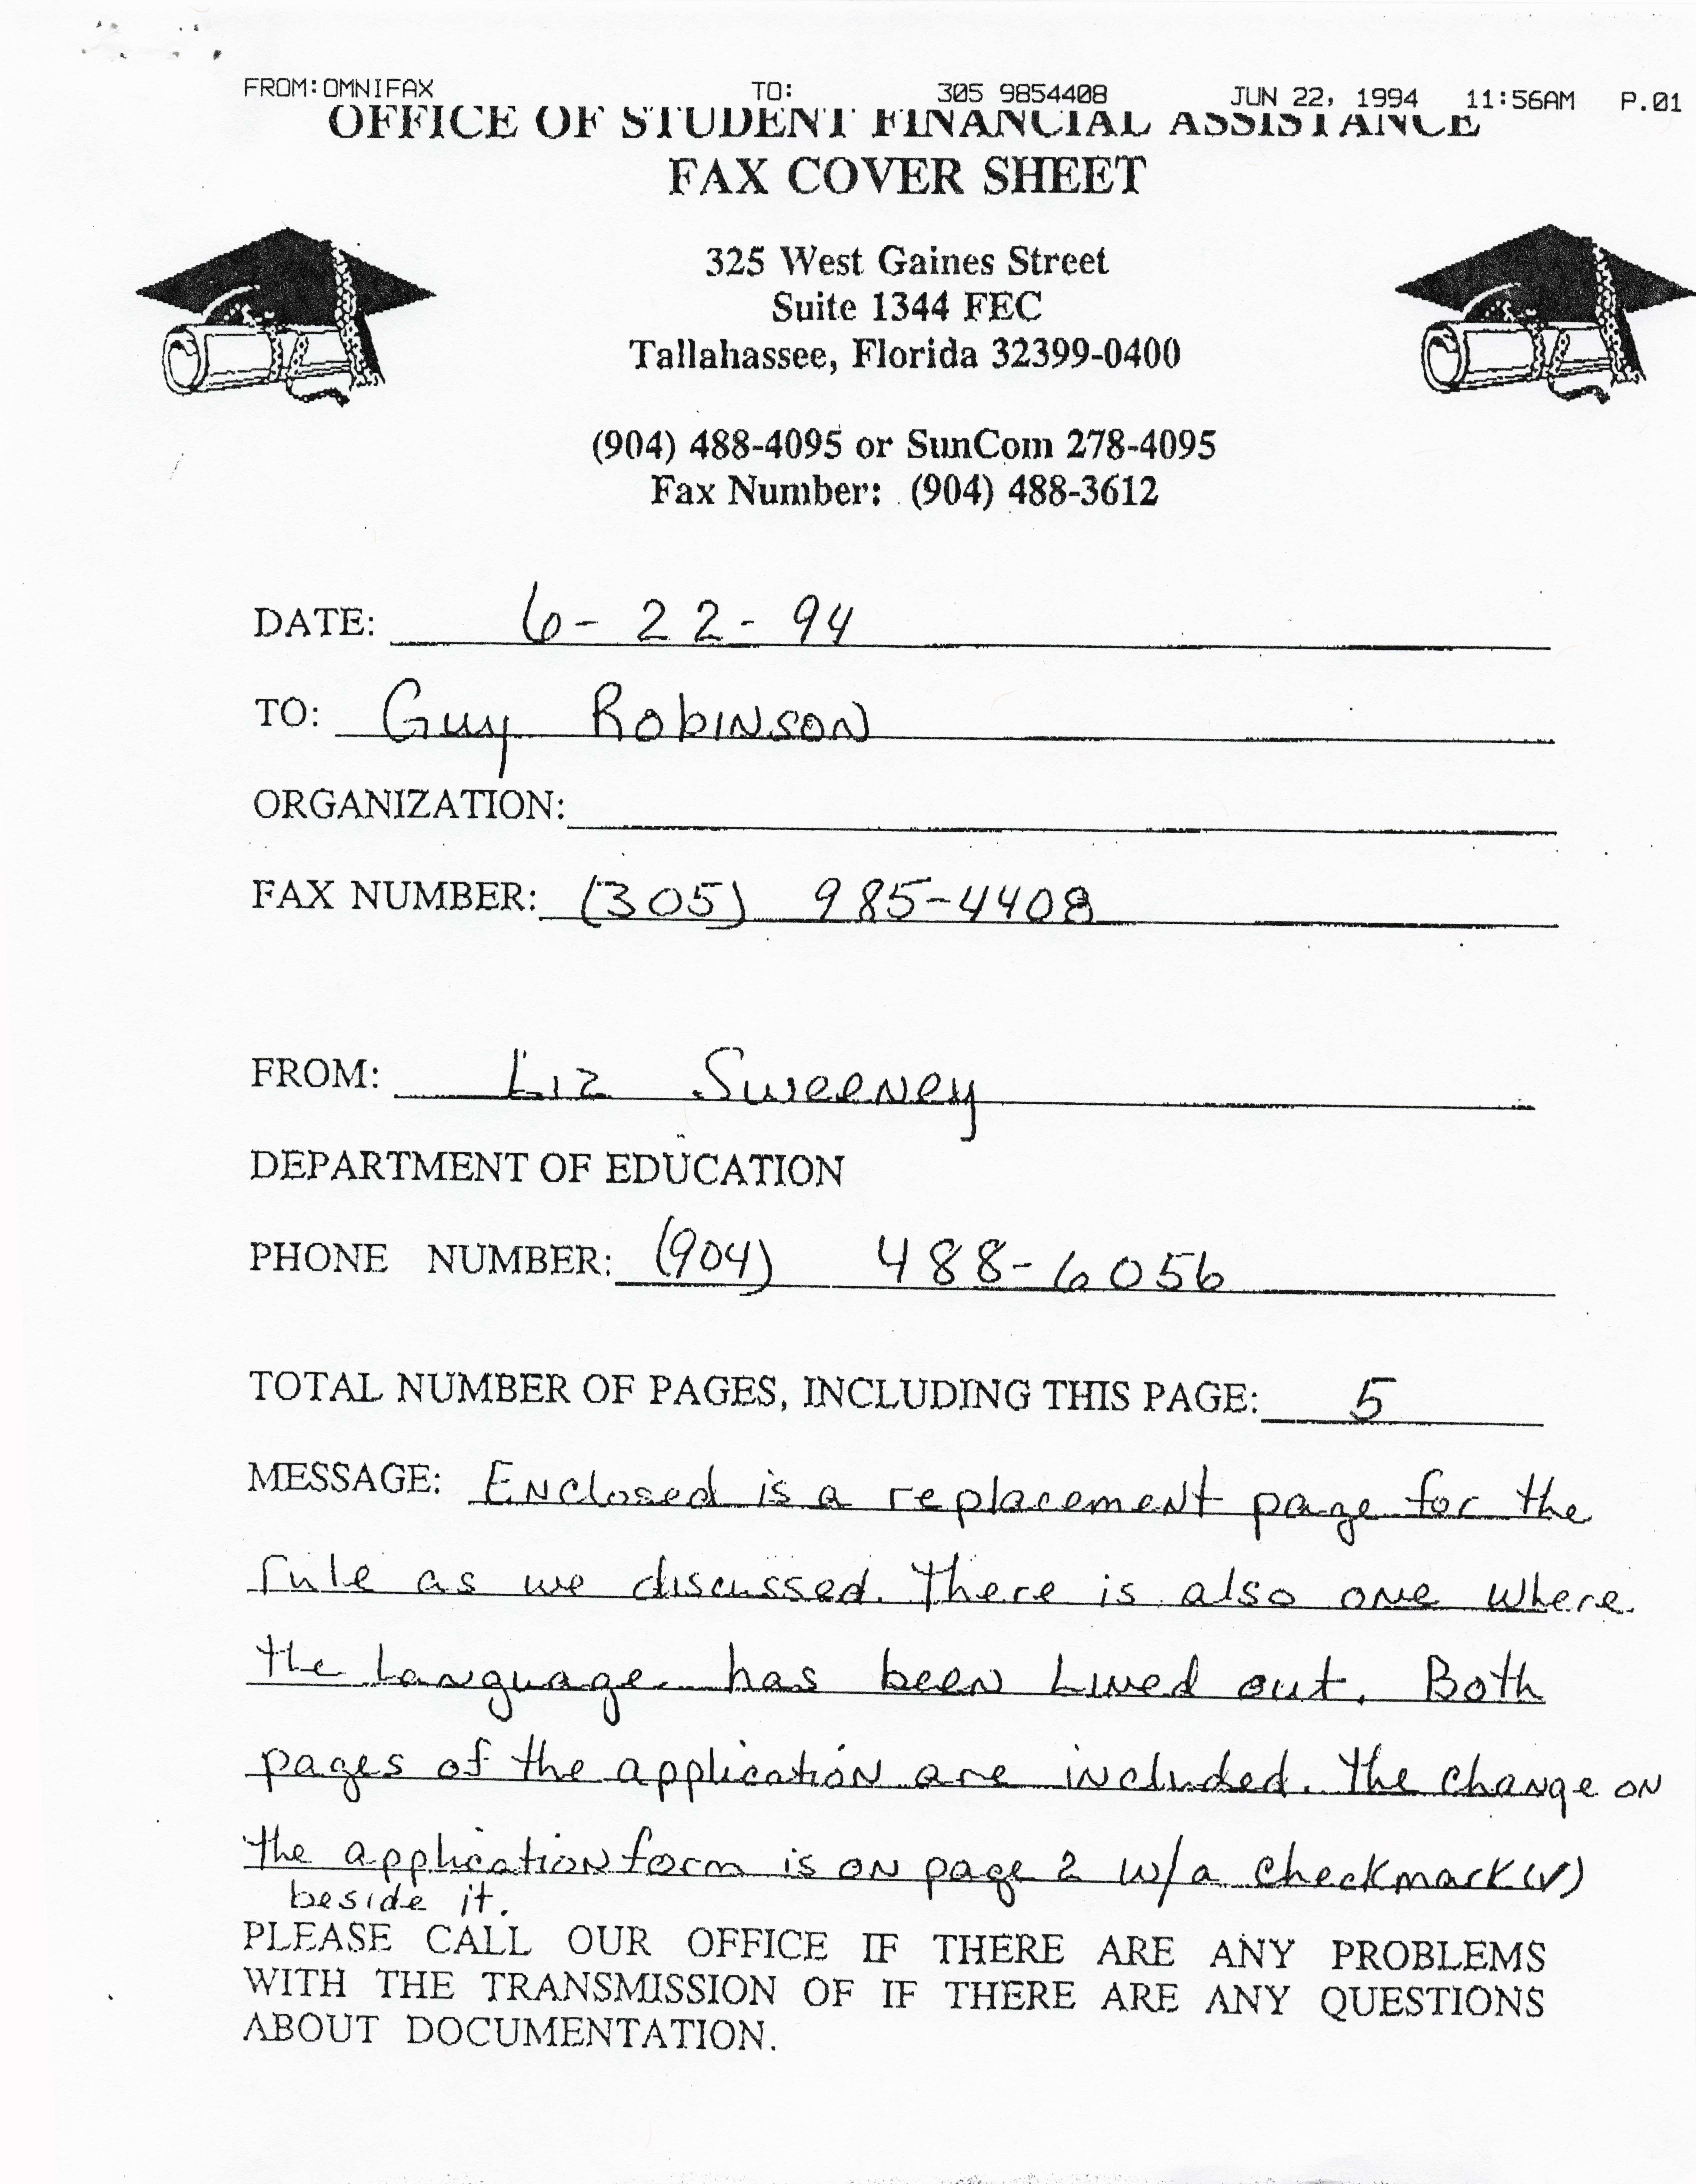 FROM:OMNIFAX TO: 305 9854408 JUN 22, 1994 11:56AM P.01
OFFICE OF STUDENT FINANCIAL ASSISTANCE
FAX COVER SHEET
325 West Gaines Street
Suite 1344 FEC
Tallahassee, Florida 32399-0400
(904) 488-4095 or SunCom 278-4095
Fax Number: (904) 488-3612
DATE: 6-22-94
TO: Guy Robinson
ORGANIZATION:
FAX NUMBER: (305) 985-4408
FROM: Liz Sweeney
DEPARTMENT OF EDUCATION
PHONE NUMBER: (904) 488-6056
TOTAL NUMBER OF PAGES, INCLUDING THIS PAGE: 5
MESSAGE: Enclosed is a replacement page for the
rule as we discussed. There is also one where
the language has been Lined out. Both
pages of the application are included. The change on
the application form is on page 2 w/a checkmark (✓)
beside it.
PLEASE CALL OUR OFFICE IF THERE ARE ANY PROBLEMS
WITH THE TRANSMISSION OF IF THERE ARE ANY QUESTIONS
ABOUT DOCUMENTATION.